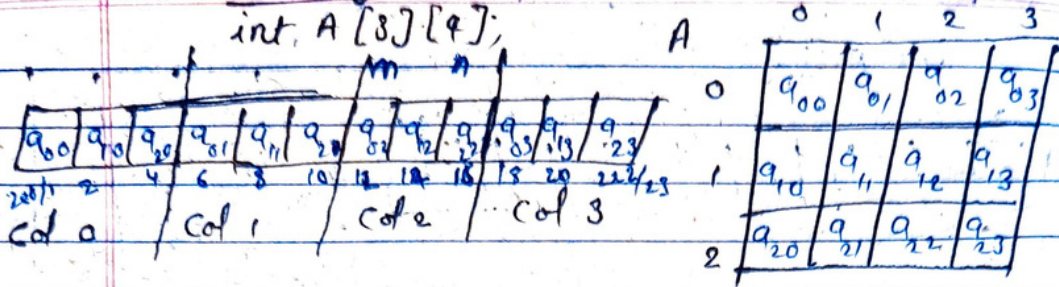 int A [3] [4];
m n
a00 a10 a20 a01 a11 a21 a02 a12 a22 a03 a13 a23
200/1 2 4 6 8 10 12 14 16 18 20 222/23
Col 0 Col 1 Col 2 Col 3
A
0 1 2 3
0 a00 a01 a02 a03
1 a10 a11 a12 a13
2 a20 a21 a22 a23